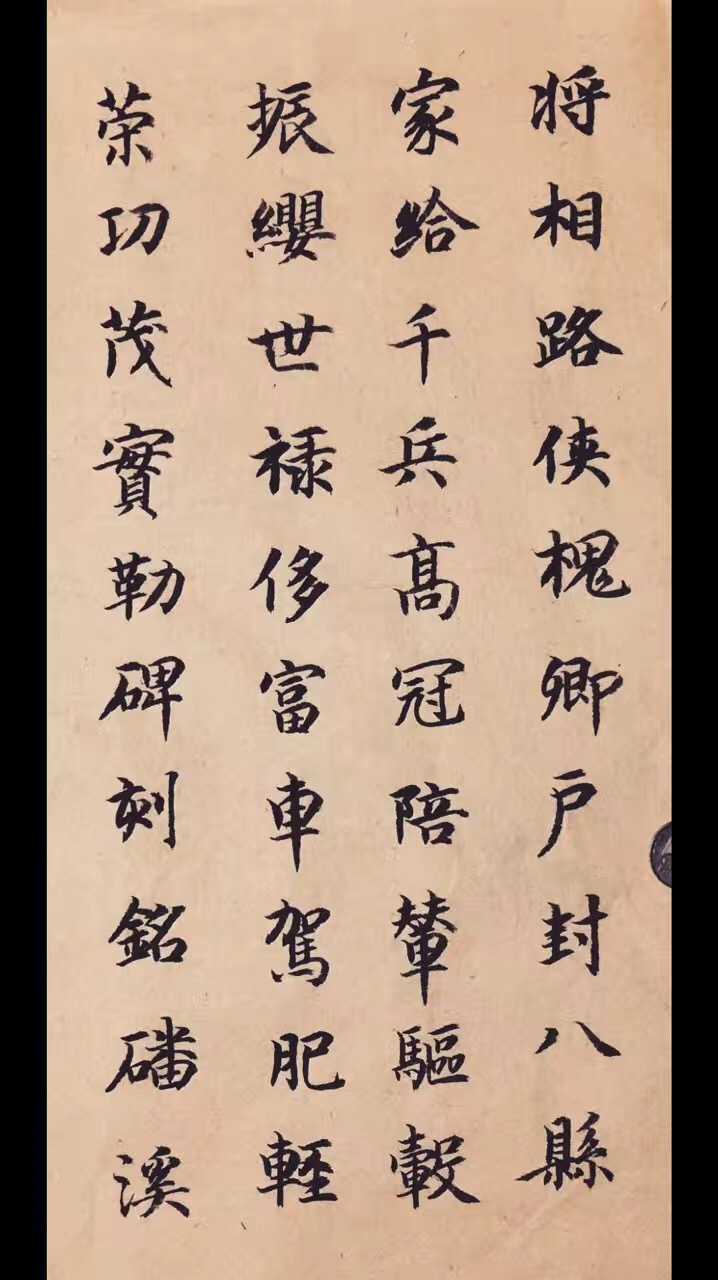 将相路侠槐卿户封八縣
家給千兵高冠陪輦驅轂
振纓世禄侈富車駕肥軽
荣功茂實勒碑刻銘磻溪